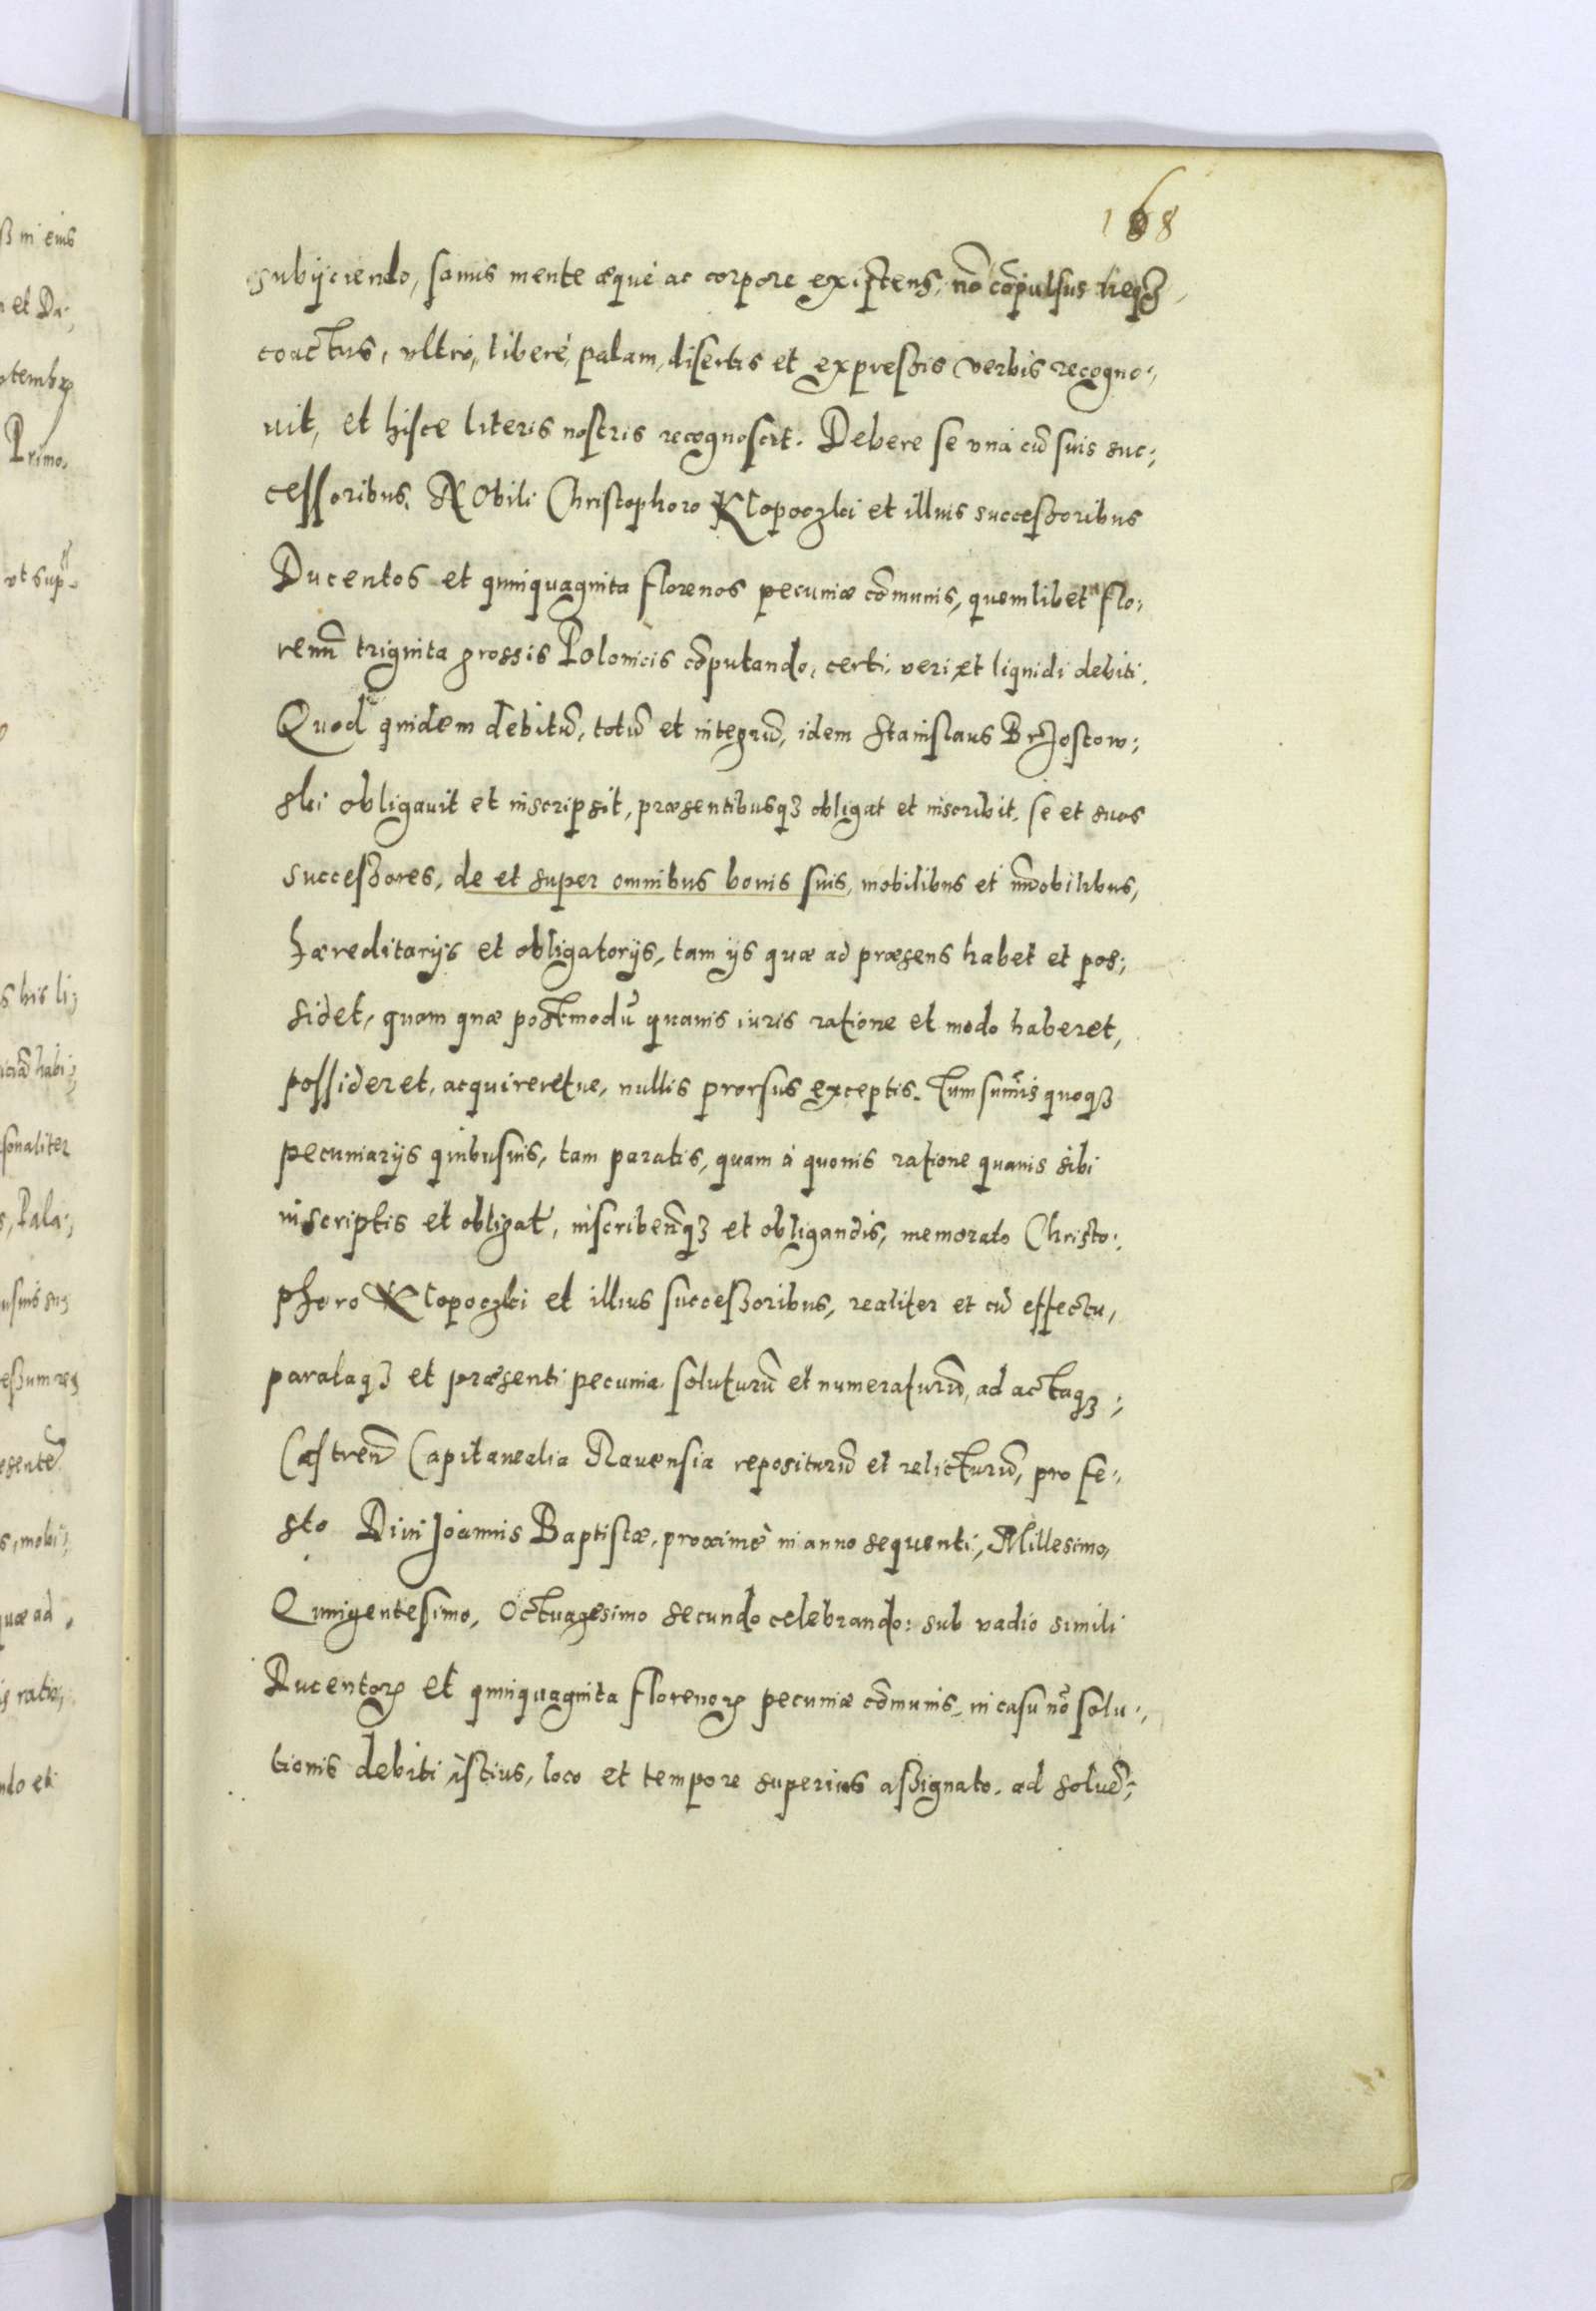 168
subijciendo, sanus mente æquè ac corpore existens, nõ cõpulsus neqꝫ
coactus, ultrò, liberè, palam, disertis et expressis verbis recogno-
uit, et hisce literis nostris recognoscit. Debere se unà cũ suis suc-
cessoribus, Nobili Christophoro Klopoczki et illius successoribus
Ducentos et quinquaginta florenos pecuniæ cõmunis, quemlibet flo-
renũ triginta grossis Polonicis cõputando, certi, veri et liquidi debiti.
Quod quidem debitũ, totũ et integrũ, idem Stanislaus Brzostow-
ski obligauit et inscripsit, præsentibusqꝫ obligat et inscribit, se et suos
successores, de et super omnibus bonis suis, mobilibus et im̃obilibus,
hæreditarijs et obligatorijs, tam ijs quæ ad præsens habet et pos-
sidet, quam quæ postmodũ quauis iuris ratione et modo haberet,
possideret, acquireretue, nullis prorsus exceptis. Tum sum̃is quoqꝫ
pecuniarijs quibusuis, tam paratis, quam à quouis ratione quauis sibi
inscriptis et obligat̃, inscribend̃qꝫ et obligandis, memorato Christo-
phoro Klopoczki et illius successoribus, realiter et cũ effectu,
parataqꝫ et præsenti pecunia soluturũ et numeraturũ, ad actaqꝫ
Castreñ Capitanealia Rauensia repositurũ et relicturũ, pro fe-
sto Diui Joannis Baptistæ, proximè in anno sequenti, Millesimo,
Quingentesimo, Octuagesimo secundo celebrando: sub vadio simili
Ducentoꝝ et quinquaginta florenoꝝ pecuniæ cõmunis, in casu nõ solu-
tionis debiti istius, loco et tempore superius assignato, ad soluẽ-